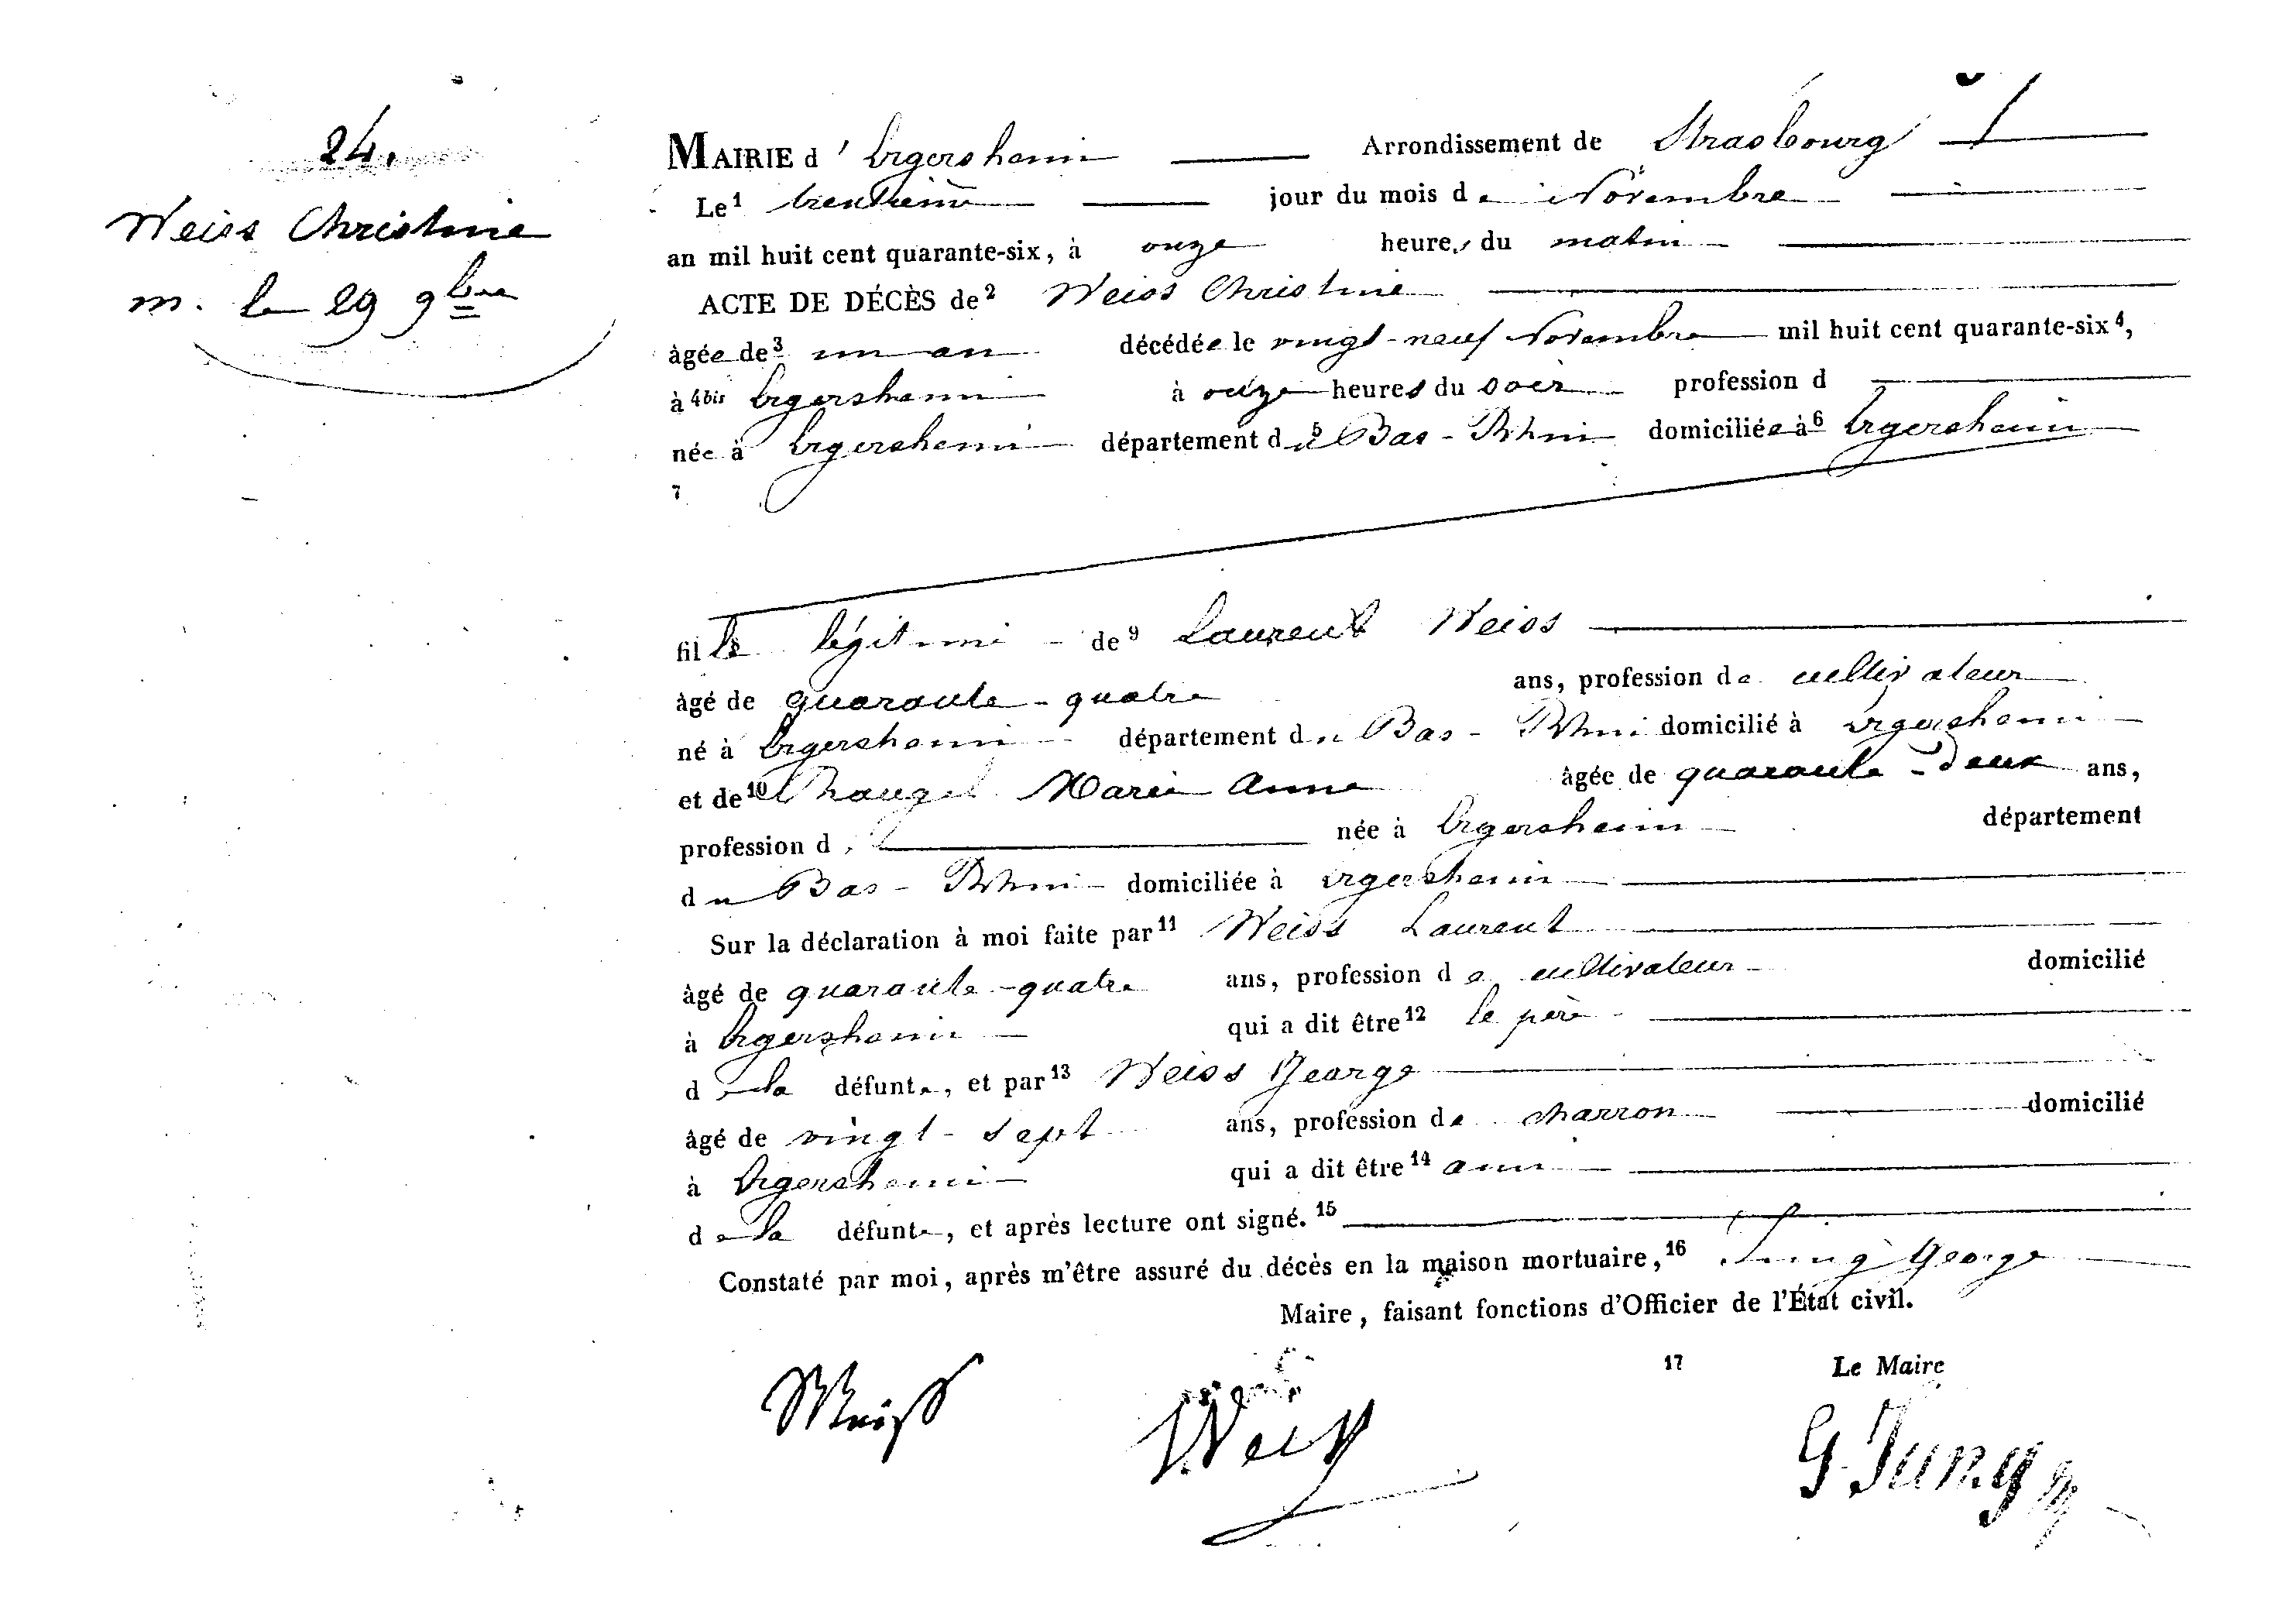 24.
Weiss Christine
m. le 29 9bre
MAIRIE d' Ergersheim Arrondissement de Strasbourg
Le 1 trentième jour du mois de Novembre
an mil huit cent quarante-six, à onze heures du matin
ACTE DE DÉCÈS de 2 Weiss Christine
âgée de 3 un an décédée le vingt-neuf Novembre mil huit cent quarante-six 4,
à 4bis Ergersheim à onze heures du soir profession d
née à Ergersheim département du 5 Bas-Rhin domiciliée à 6 Ergersheim
7
fille légitime de 9 Laurent Weiss
âgé de quarante-quatre ans, profession de cultivateur
né à Ergersheim département du Bas-Rhin domicilié à Ergersheim
et de 10 Marie Anne âgée de quarante-deux ans,
profession d née à Ergersheim département
du Bas-Rhin domiciliée à Ergersheim
Sur la déclaration à moi faite par 11 Weiss Laurent
âgé de quarante-quatre ans, profession de cultivateur domicilié
à Ergersheim qui a dit être 12 le père
de la défunte, et par 13 Weiss George
âgé de vingt-sept ans, profession de charron domicilié
à Ergersheim qui a dit être 14 ami
de la défunte, et après lecture ont signé. 15
Constaté par moi, après m'être assuré du décès en la maison mortuaire, 16 Jung George
Maire, faisant fonctions d'Officier de l'État civil.
17 Le Maire
Weiß Weiß G. Jung